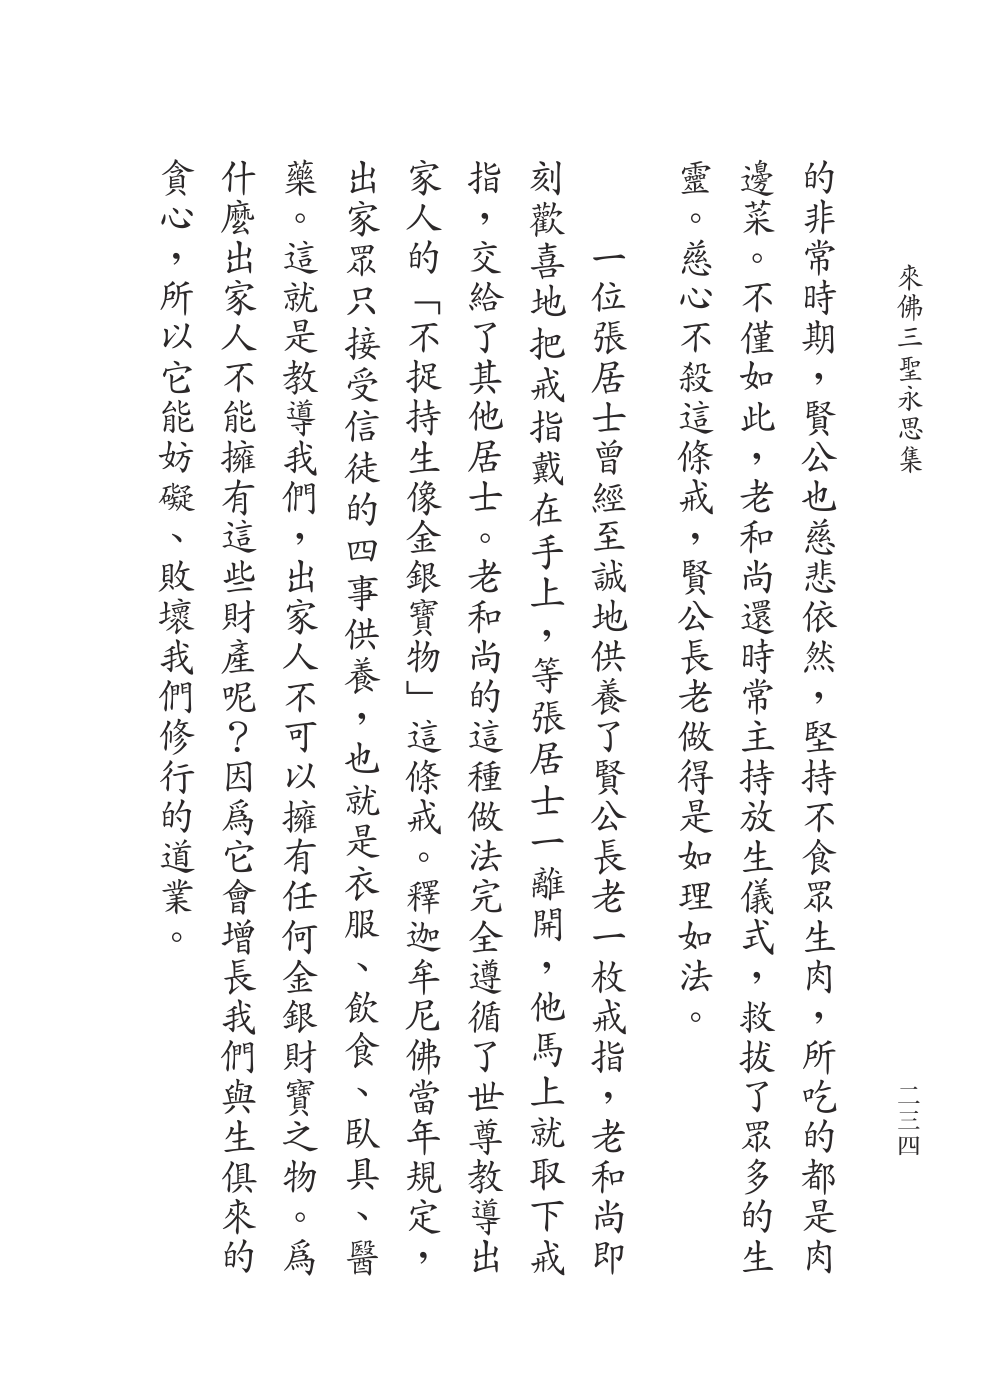 來佛三聖永思集
二三四
的非常時期，賢公也慈悲依然，堅持不食眾生肉，所吃的都是肉
邊菜。不僅如此，老和尚還時常主持放生儀式，救拔了眾多的生
靈。慈心不殺這條戒，賢公長老做得是如理如法。
一位張居士曾經至誠地供養了賢公長老一枚戒指，老和尚即
刻歡喜地把戒指戴在手上，等張居士一離開，他馬上就取下戒
指，交給了其他居士。老和尚的這種做法完全遵循了世尊教導出
家人的「不捉持生像金銀寶物」這條戒。釋迦牟尼佛當年規定，
出家眾只接受信徒的四事供養，也就是衣服、飲食、臥具、醫
藥。這就是教導我們，出家人不可以擁有任何金銀財寶之物。為
什麼出家人不能擁有這些財產呢？因為它會增長我們與生俱來的
貪心，所以它能妨礙、敗壞我們修行的道業。